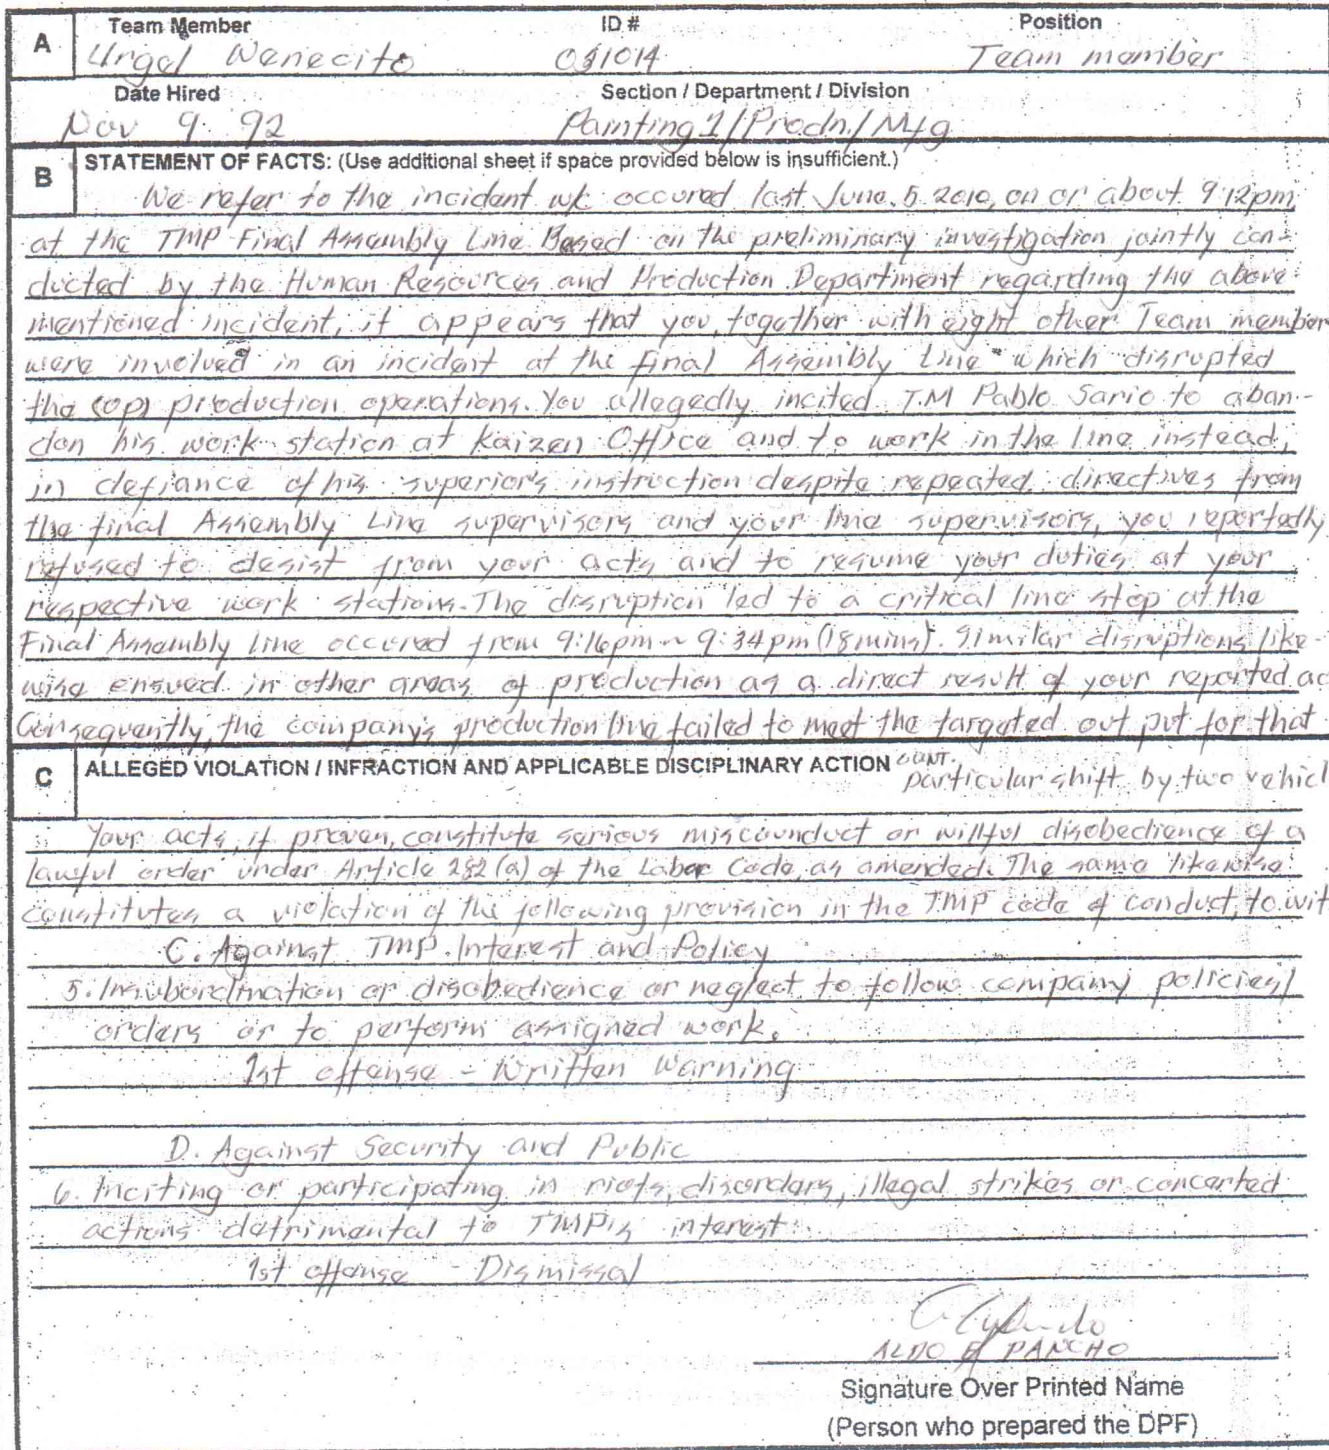 A
Team Member ID # Position
Urgel Wenecito 031014 Team member
Date Hired Section / Department / Division
Nov 9. 92 Painting 1/Prodn./Mfg
B
STATEMENT OF FACTS: (Use additional sheet if space provided below is insufficient.)
We refer to the incident wc occured last June. 5 2010, on or about 9:12pm
at the TMP Final Assembly Line Based on the preliminary investigation jointly con-
ducted by the Human Resources and Production Department regarding the above
mentioned incident, it appears that you, together with eight other Team member
were involved in an incident at the final Assembly Line which disrupted
the production operations. You allegedly incited T.M Pablo Sario to aban-
don his work station at Kaizen Office and to work in the line instead,
in defiance of his superior's instruction despite repeated directives from
the final Assembly Line supervisors and your line supervisors, you reportedly
refused to desist from your acts and to resume your duties at your
respective work stations. The disruption led to a critical line stop at the
Final Assembly Line occured from 9:16pm ~ 9:34pm (18mins). Similar disruptions like-
wise ensued in other areas of production as a direct result of your reported ac
Consequently, the company's production line failed to meet the targeted out put for that
C
ALLEGED VIOLATION / INFRACTION AND APPLICABLE DISCIPLINARY ACTION CONT. particular shift by two vehicl
Your acts, if proven, constitute serious miscounduct or willful disobedience of a
lawful order under Article 282 (a) of the Labor Code, as amended. The same likewise
constitutes a violation of the following provision in the TMP code of conduct, to wit
C. Against TMP Interest and Policy
5. Insubordination or disobedience or neglect to follow company policies/
orders or to perform assigned work.
1st offense - Written Warning
D. Against Security and Public
6. Inciting or participating in riots, disorders, illegal strikes or concerted
actions detrimental to TMP's interest
1st offense - Dismissal
ALDO PANCHO
Signature Over Printed Name
(Person who prepared the DPF)